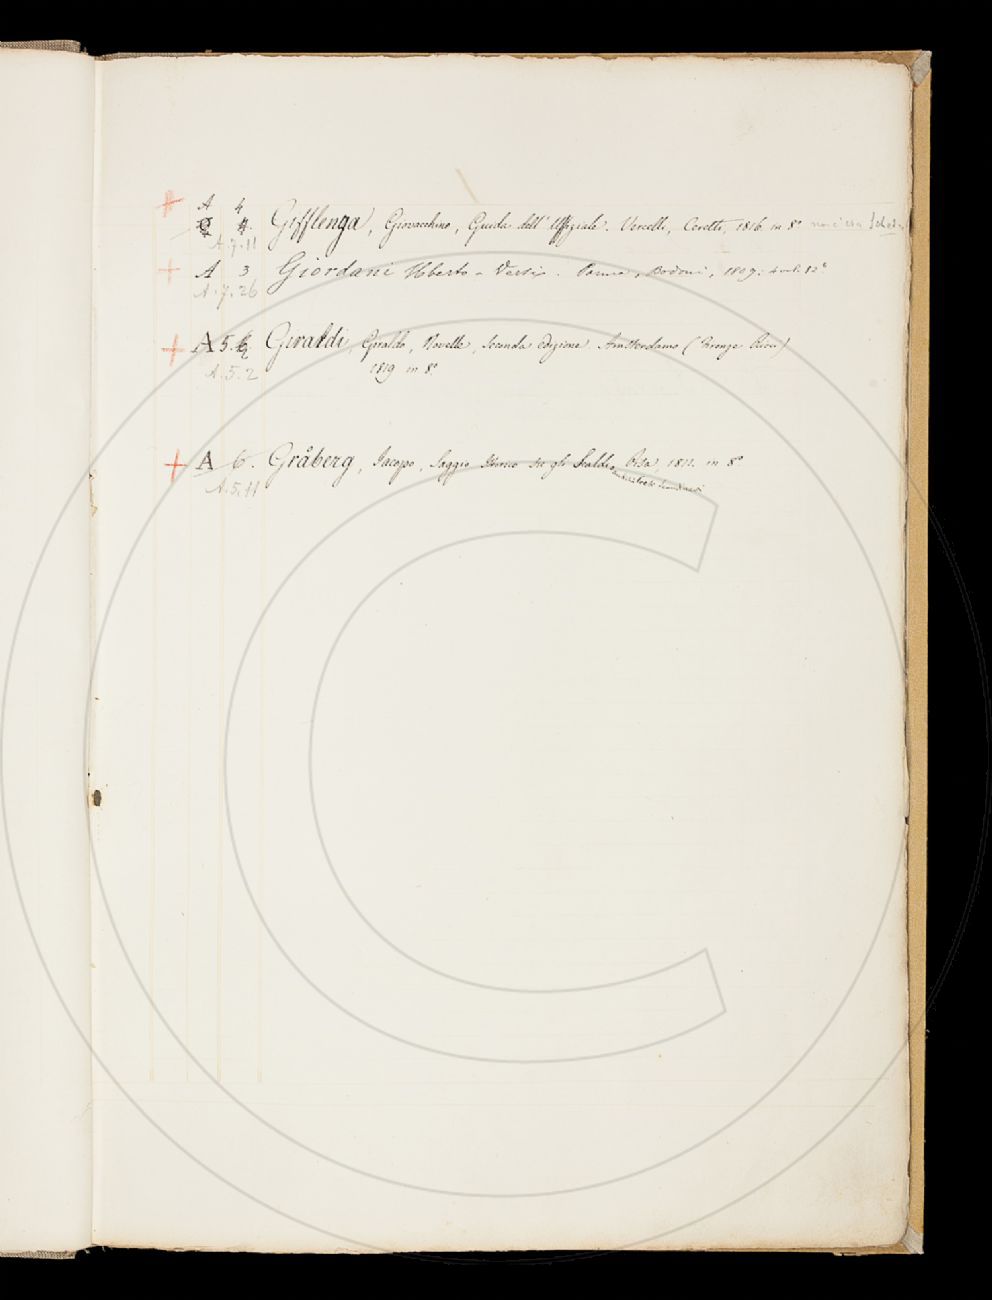 A 4
4. Gifflenga, Giovacchino, Guida dell' Uffiziale. Vercelli, Ceretti, 1816. in 8º
A.7.11
A 3 Giordani Uberto - Versi. Parma, Bodoni, 1809. 4 vol. 12º
A.7.26
A 5. Giraldi Giraldo, Novelle, Seconda Edizione. Amsterdamo (Firenze
1819 in 8º
A.5.2
A 6. Gråberg, Jacopo, Saggio Istorico su gli Scaldi Pisa 1811. in 8º
A.5.11